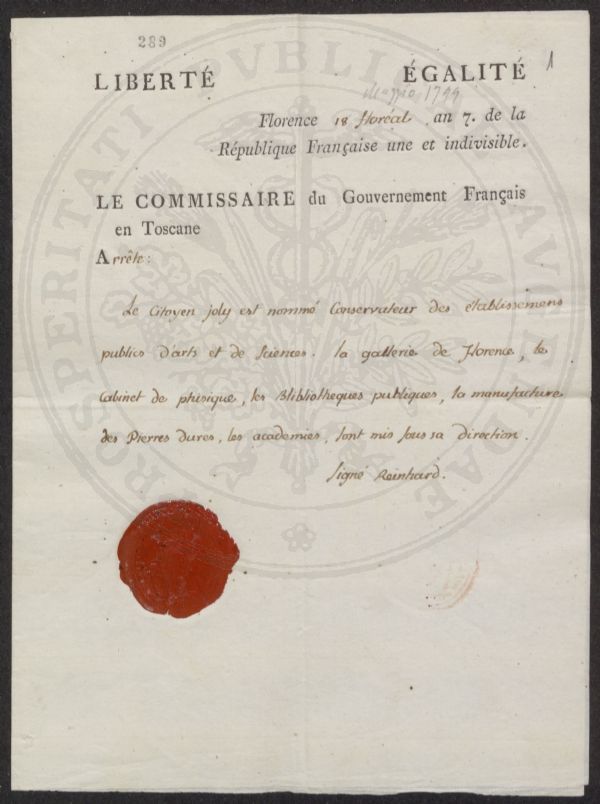 289
1
LIBERTÉ ÉGALITÉ
Maggio, 1799
Florence 18 floréal an 7. de la
République Française une et indivisible.
LE COMMISSAIRE du Gouvernement Français
en Toscane
Arrête:
Le Citoyen joly est nommé Conservateur des établissemens
publics d'arts et de Sciences. la gallerie de Florence, le
Cabinet de phisique, les Blibliotheques publiques, la manufacture
des Pierres dures, les academies, sont mis sous sa direction.
signé Reinhard.
PROSPERITATI PVBLICAE AVGENDAE